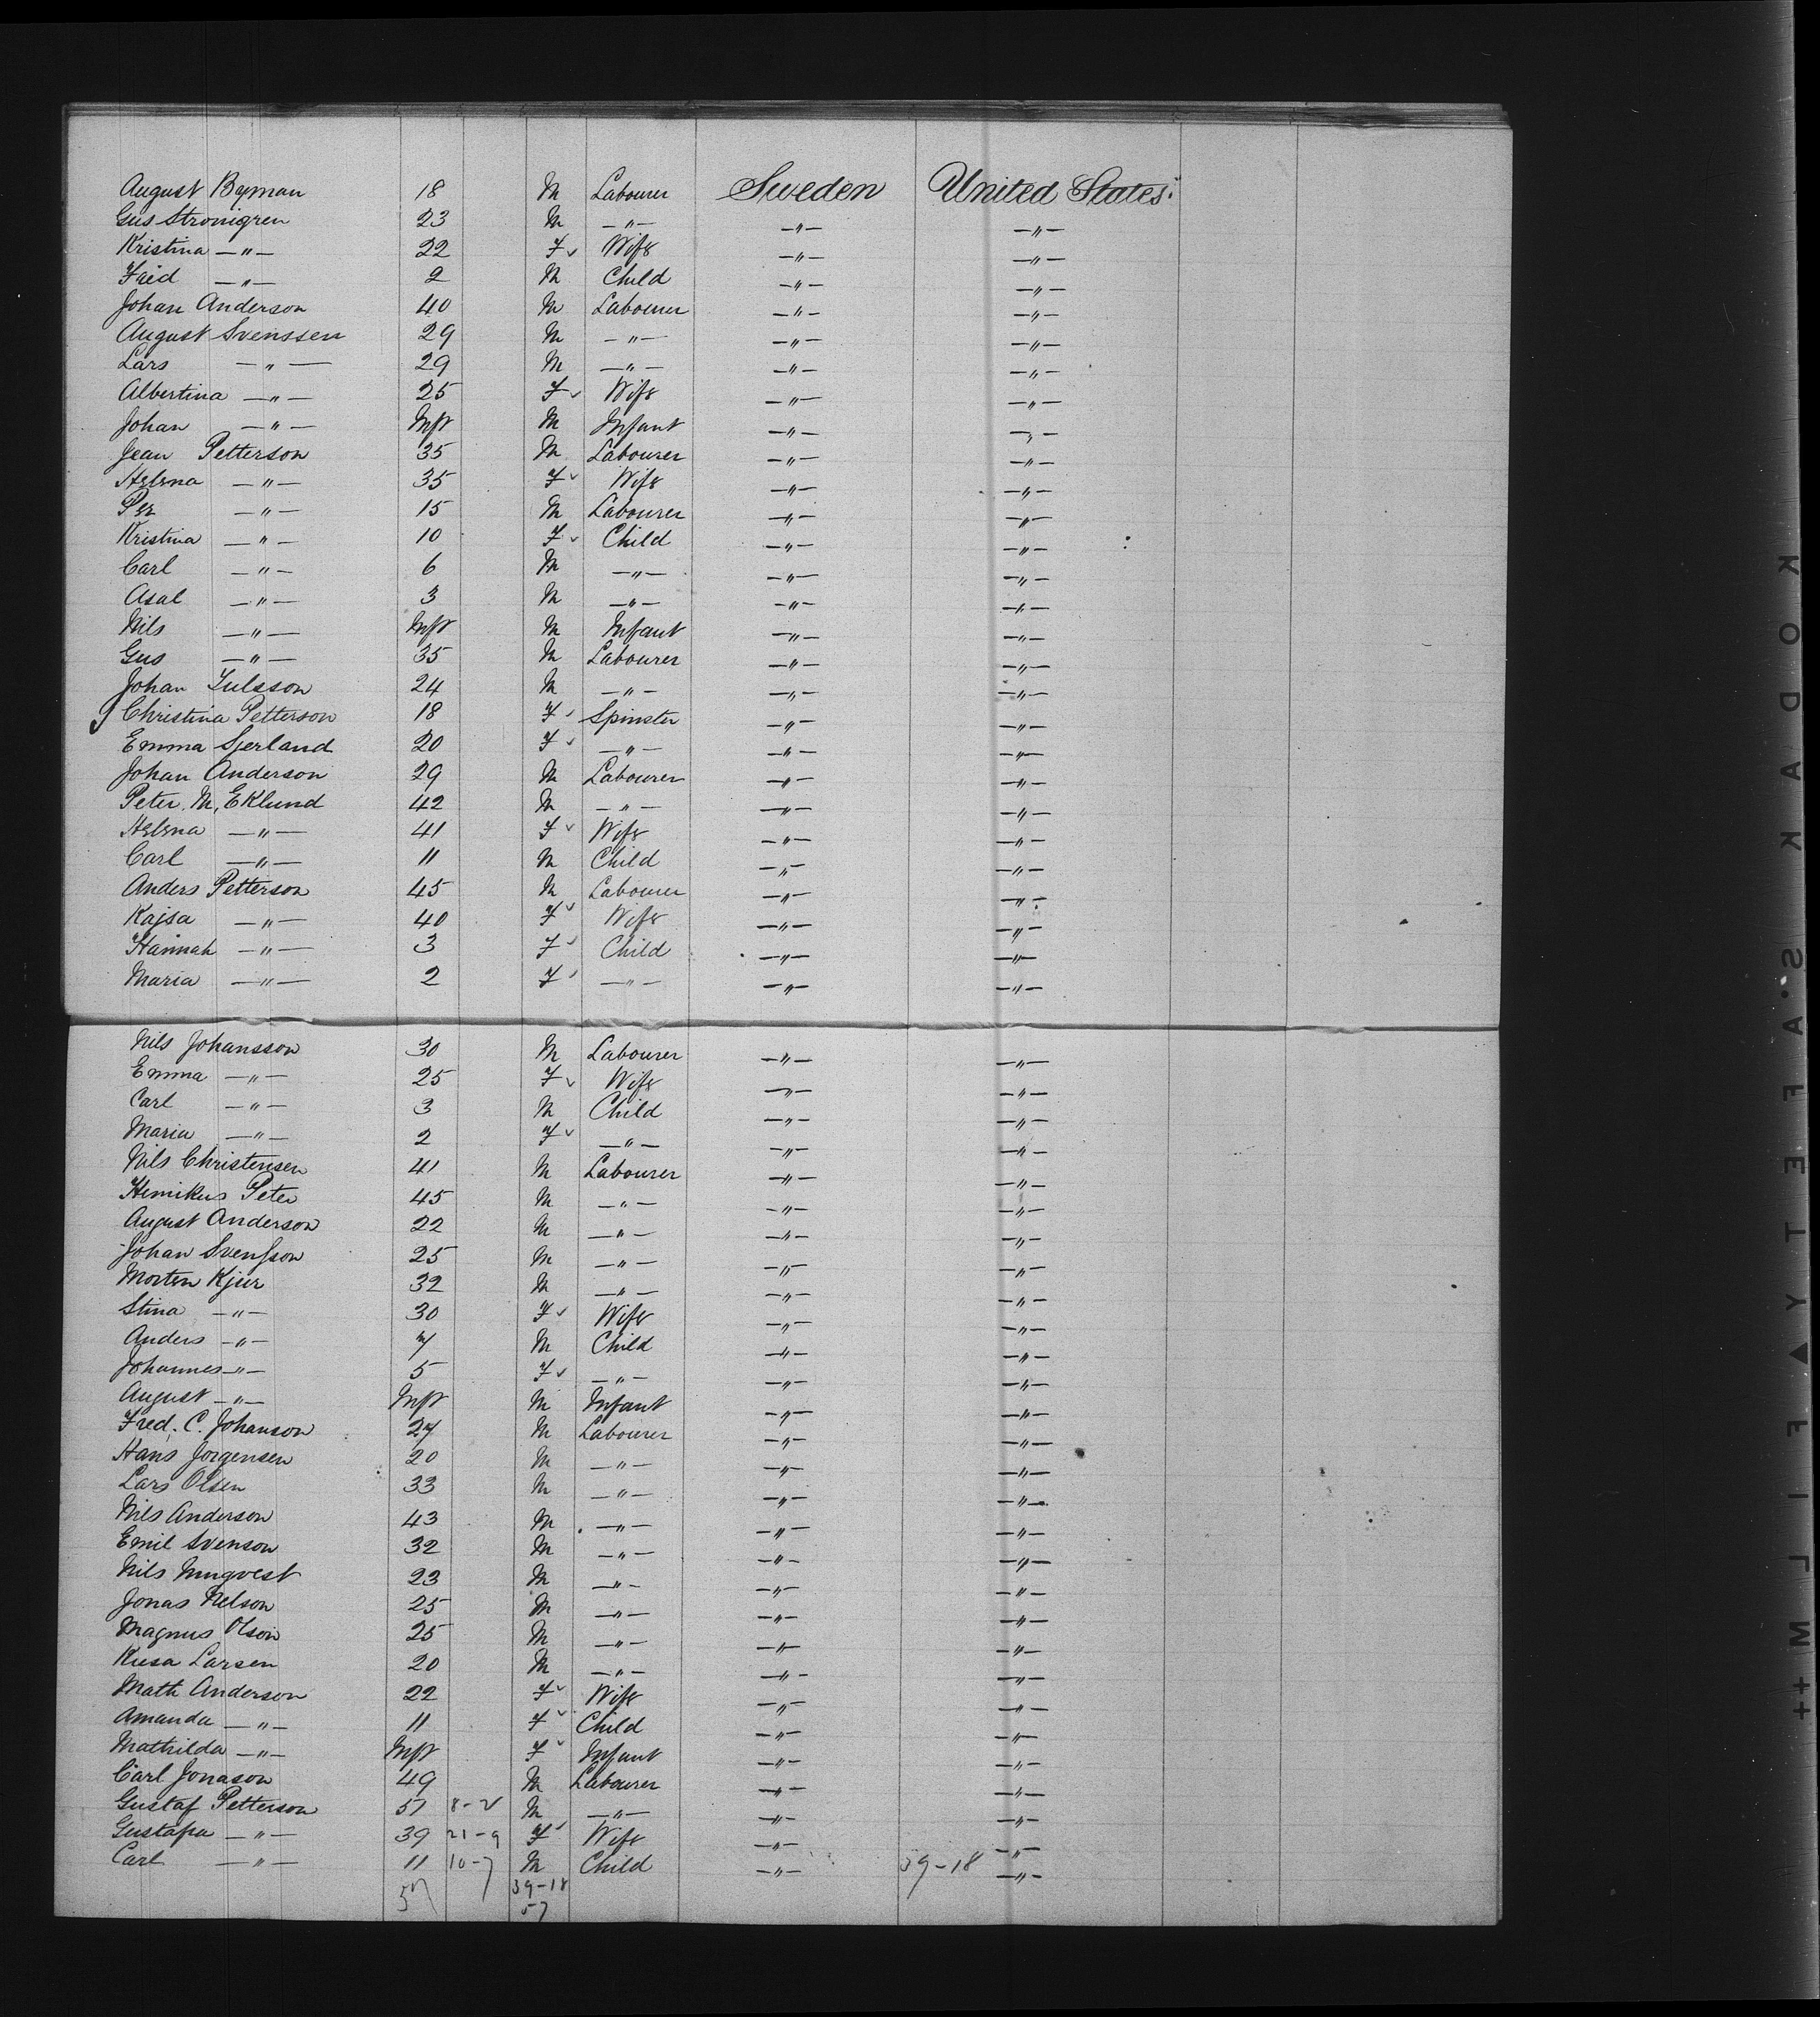 August Byman 18 M Labourer Sweden United States.
Gus Stromgren 23 M —"— —"— —"—
Kristina —"— 22 F ✓ Wife —"— —"—
Fried —"— 2 M Child —"— —"—
Johan Anderson 40 M Labourer —"— —"—
August Svenssen 29 M —"— —"— —"—
Lars —"— 29 M —"— —"— —"—
Albertina —"— 25 F ✓ Wife —"— —"—
Johan —"— Inft M Infant —"— —"—
Jean Petterson 35 M Labourer —"— —"—
Helena —"— 35 F ✓ Wife —"— —"—
Per —"— 15 M Labourer —"— —"—
Kristina —"— 10 F ✓ Child —"— —"—
Carl —"— 6 M —"— —"— —"—
Axal —"— 3 M —"— —"— —"—
Nils —"— Inft M Infant —"— —"—
Gus —"— 35 M Labourer —"— —"—
Johan 24 M —"— —"— —"—
Christina Petterson 18 F ✓ Spinster —"— —"—
Emma Sjerland 20 F ✓ —"— —"— —"—
Johan Anderson 29 M Labourer —"— —"—
Peter. M. Eklund 42 M —"— —"— —"—
Helena —"— 41 F ✓ Wife —"— —"—
Carl —"— 11 M Child —"— —"—
Anders Petterson 45 M Labourer —"— —"—
Kajsa —"— 40 F ✓ Wife —"— —"—
Hannah —"— 3 F ✓ Child —"— —"—
Maria —"— 2 F ✓ —"— —"— —"—
Nils Johansson 30 M Labourer —"— —"—
Emma —"— 25 F ✓ Wife —"— —"—
Carl —"— 3 M Child —"— —"—
Maria —"— 2 F ✓ —"— —"— —"—
Nils Christensen 41 M Labourer —"— —"—
Peter 45 M —"— —"— —"—
August Anderson 22 M —"— —"— —"—
Johan Svensson 25 M —"— —"— —"—
Morten Kjer 32 M —"— —"— —"—
Stina —"— 30 F ✓ Wife —"— —"—
Anders —"— 7 M Child —"— —"—
Johannes —"— 5 F ✓ —"— —"— —"—
August —"— Inft M Infant —"— —"—
Fred. C. Johanson 27 M Labourer —"— —"—
Hans Jorgensen 20 M —"— —"— —"—
Lars Olsen 33 M —"— —"— —"—
Nils Anderson 43 M —"— —"— —"—
Emil Svenson 32 M —"— —"— —"—
Nils 23 M —"— —"— —"—
Jonas Nelson 25 M —"— —"— —"—
Magnus Olson 25 M —"— —"— —"—
Larsen 20 M —"— —"— —"—
Math Anderson 22 F ✓ Wife —"— —"—
Amanda —"— 11 F ✓ Child —"— —"—
Mathilda —"— Inft F ✓ Infant —"— —"—
Carl Jonason 49 M Labourer —"— —"—
Gustaf Petterson 57 8-2 M —"— —"— —"—
Gustafa —"— 39 21-9 F ✓ Wife —"— —"—
Carl —"— 11 10-7 M Child —"— 39-18 —"—
57 39-18
57
KODAK·SAFETY▲FILM ++